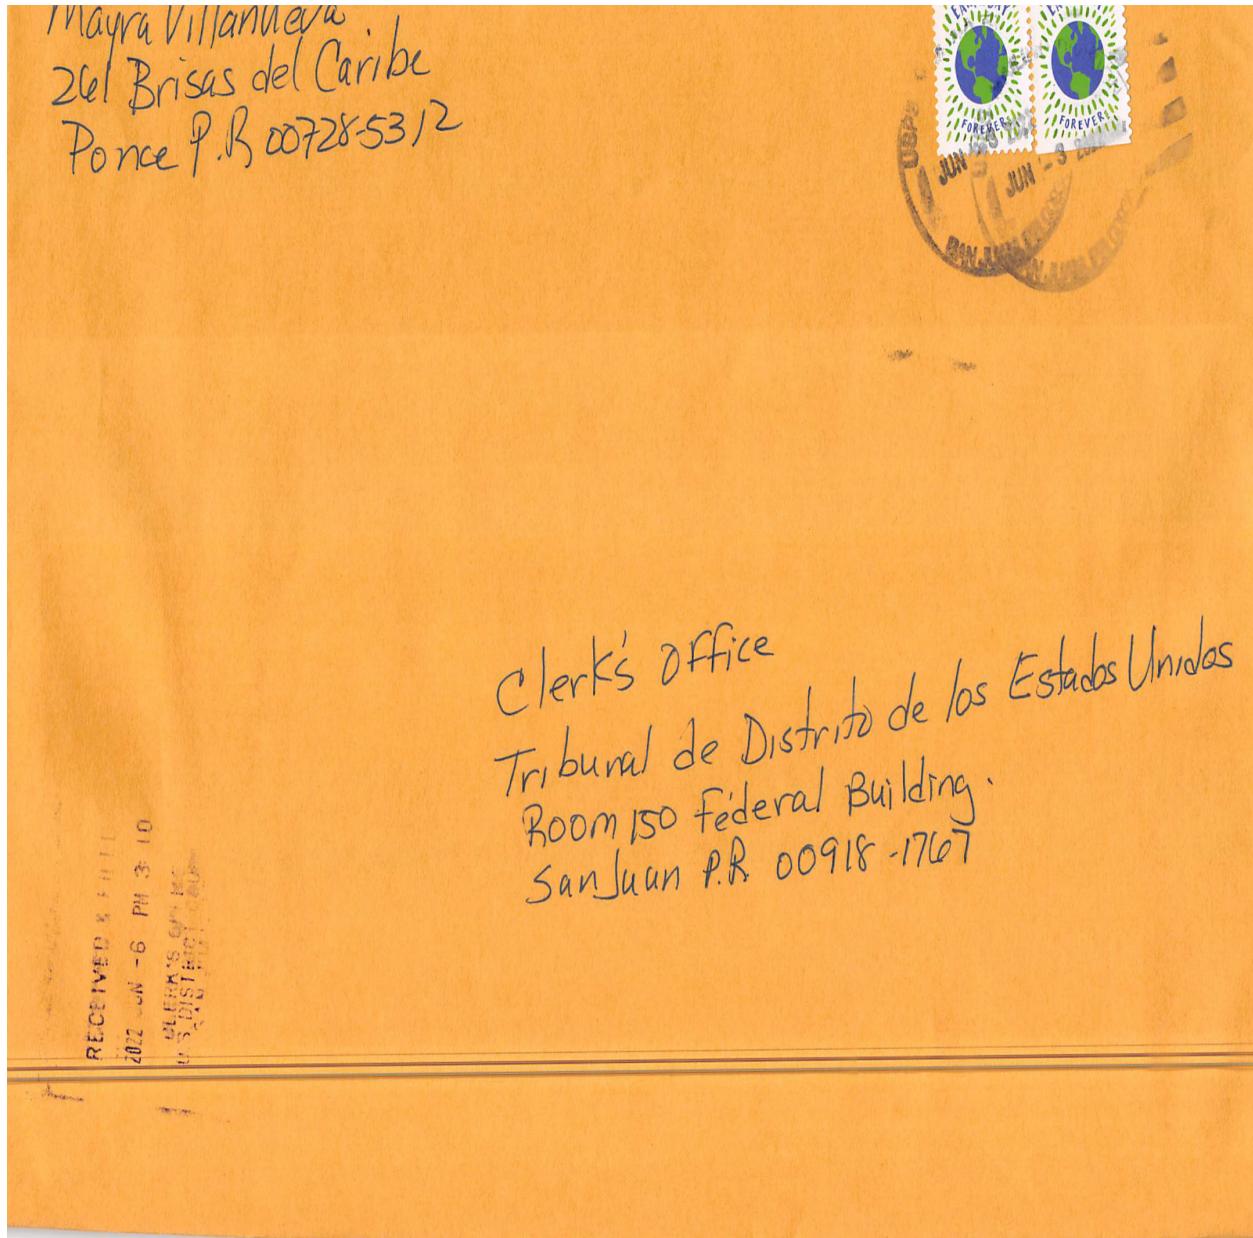 Mayra Villanueva
261 Brisas del Caribe
Ponce P.R 00728-5312
EARTH DAY
FOREVER
EARTH DAY
FOREVER
USPS
JUN
JUN - 3
SAN JUAN
SAN JUAN
Clerk's office
Tribunal de Distrito de los Estados Unidos
Room 150 Federal Building.
San Juan P.R. 00918-1767
RECEIVED &
2022 JUN -6 PM 3:10
CLERK'S OFFICE
U.S. DISTRICT COURT